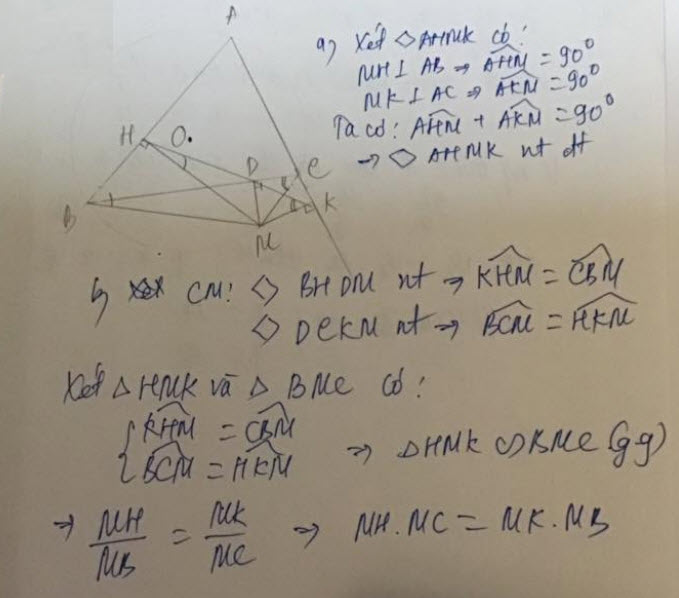 A
H O.
D C
B K
M
a) Xét ◇ AHMK có:
MH⊥ AB → \widehat{AHM} = 90°
MK⊥ AC → \widehat{AKM} = 90°
Ta có: \widehat{AHM} + \widehat{AKM} = 90°
→ ◇ AHMK nt đt
b) CM: ◇ BHDM nt → \widehat{KHM} = \widehat{CBM}
◇ DCKM nt → \widehat{BCM} = \widehat{HKM}
Xét △ HMK và △ BMC có:
{ \widehat{KHM} = \widehat{CBM}
\widehat{BCM} = \widehat{HKM} → △HMK ∽ BMC (gg)
→ \frac{MH}{MB} = \frac{MK}{MC} → MH.MC = MK.MB